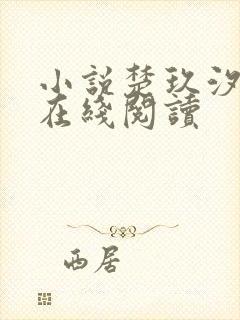 小説楚玖汐
在綫閱讀
西居